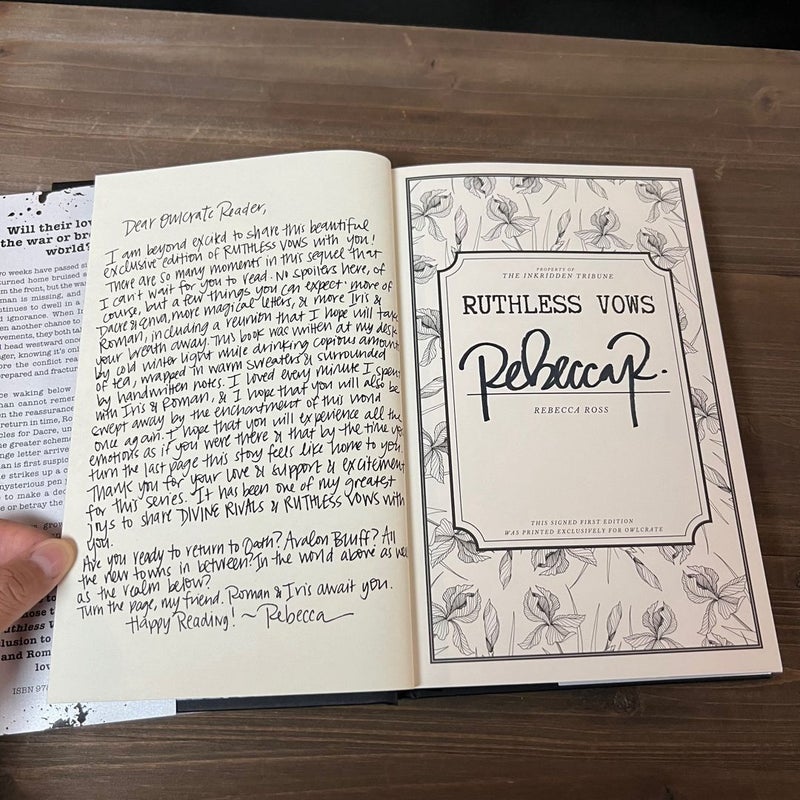 Will their lov
the war or bre
world?
wo weeks have passed s
urned home bruised a
om the front, but the wa
man is missing, and
ontinues to dwell in a
d ignorance. When I
another chance to
vements, they both tak
head westward once
ger, knowing it's onl
ore the conflict rea
repared and fractur
ce waking below
man cannot remem
n the reassurance
return in time, Ro
cles for Dacre, un
e greater scheme
nge letter arrives
an is first suspicio
e strikes up a c
mysterious pen
to make a dec
or betray the
ISBN 978
Dear OwlCrate Reader,
I am beyond excited to share this beautiful
exclusive edition of RUTHLESS VOWS with you!
There are so many moments in this sequel that
I can't wait for you to read. No spoilers here, of
course, but a few things you can expect: more of
Dacre & Enva, more magical letters, & more Iris &
Roman, including a reunion that I hope will take
your breath away. This book was written at my desk
by cold winter light while drinking copious amount
of tea, wrapped in warm sweaters & surrounded
by handwritten notes. I loved every minute I spent
with Iris & Roman, & I hope that you will also be
swept away by the enchantment of this world
once again. I hope that you will experience all the
emotions as if you were there & that by the time you
turn the last page this story feels like home to you.
Thank you for your love & support & excitement
for this series. It has been one of my greatest
joys to share DIVINE RIVALS & RUTHLESS VOWS with
you.
Are you ready to return to Oath? Avalon Bluff? All
the new towns in between? In the world above as well
as the realm below?
Turn the page, my friend. Roman & Iris await you.
Happy Reading! ~ Rebecca
PROPERTY OF
THE INKRIDDEN TRIBUNE
RUTHLESS VOWS
Rebecca R.
REBECCA ROSS
THIS SIGNED FIRST EDITION
WAS PRINTED EXCLUSIVELY FOR OWLCRATE